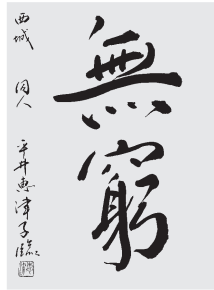 無窮
西城 同人
平井恵津子臨